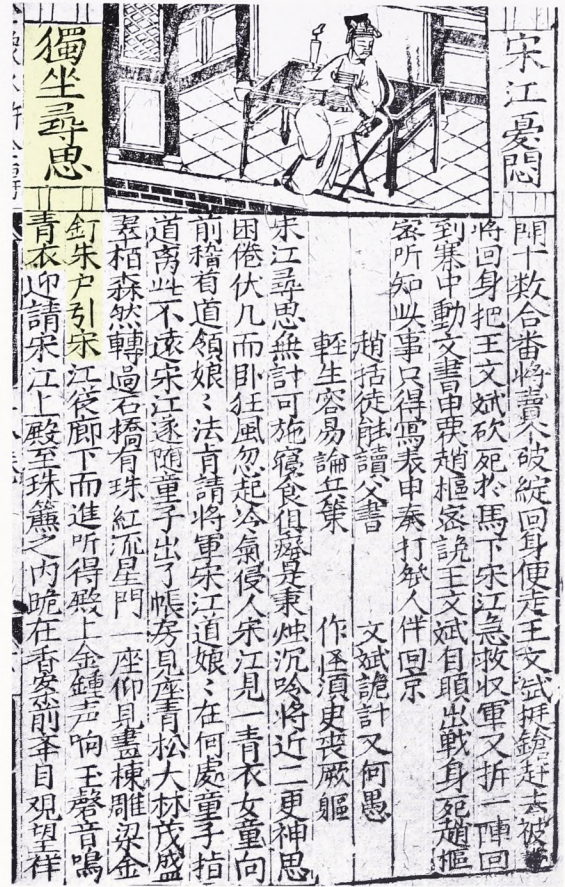 宋江憂悶
獨坐尋思
鬪十数合番將賣个破綻回身便走王文斌挺鎗赶去被
將回身把王文斌砍死於馬下宋江急救収軍又折一陣回
到寨中動文書申覆趙樞宻說王文斌自願出戰身死趙樞
宻听知此事只得寫表申奏打發人伴回京
趙括徒能讀父書 文斌詭計又何愚
輕生容易論兵策 作怪須史丧厥軀
宋江尋思無計可施寝食俱癈是夜秉烛沉吟將近二更神思
困倦伏几而卧狂風忽起冷氣侵人宋江見一青衣女童向
前稽首道領娘〻法旨請將軍宋江道娘〻在何處童子指
道离此不遠宋江遂随童子出了帳房見座青松大林茂盛
翠栢森然轉過石橋有珠紅流星門一座仰見畫棟雕梁金
釘朱户引宋江從廊下而進听得殿上金鍾声响玉磬音鳴
青衣迎請宋江上殿至珠簾之内跪在香案前舉目观望祥